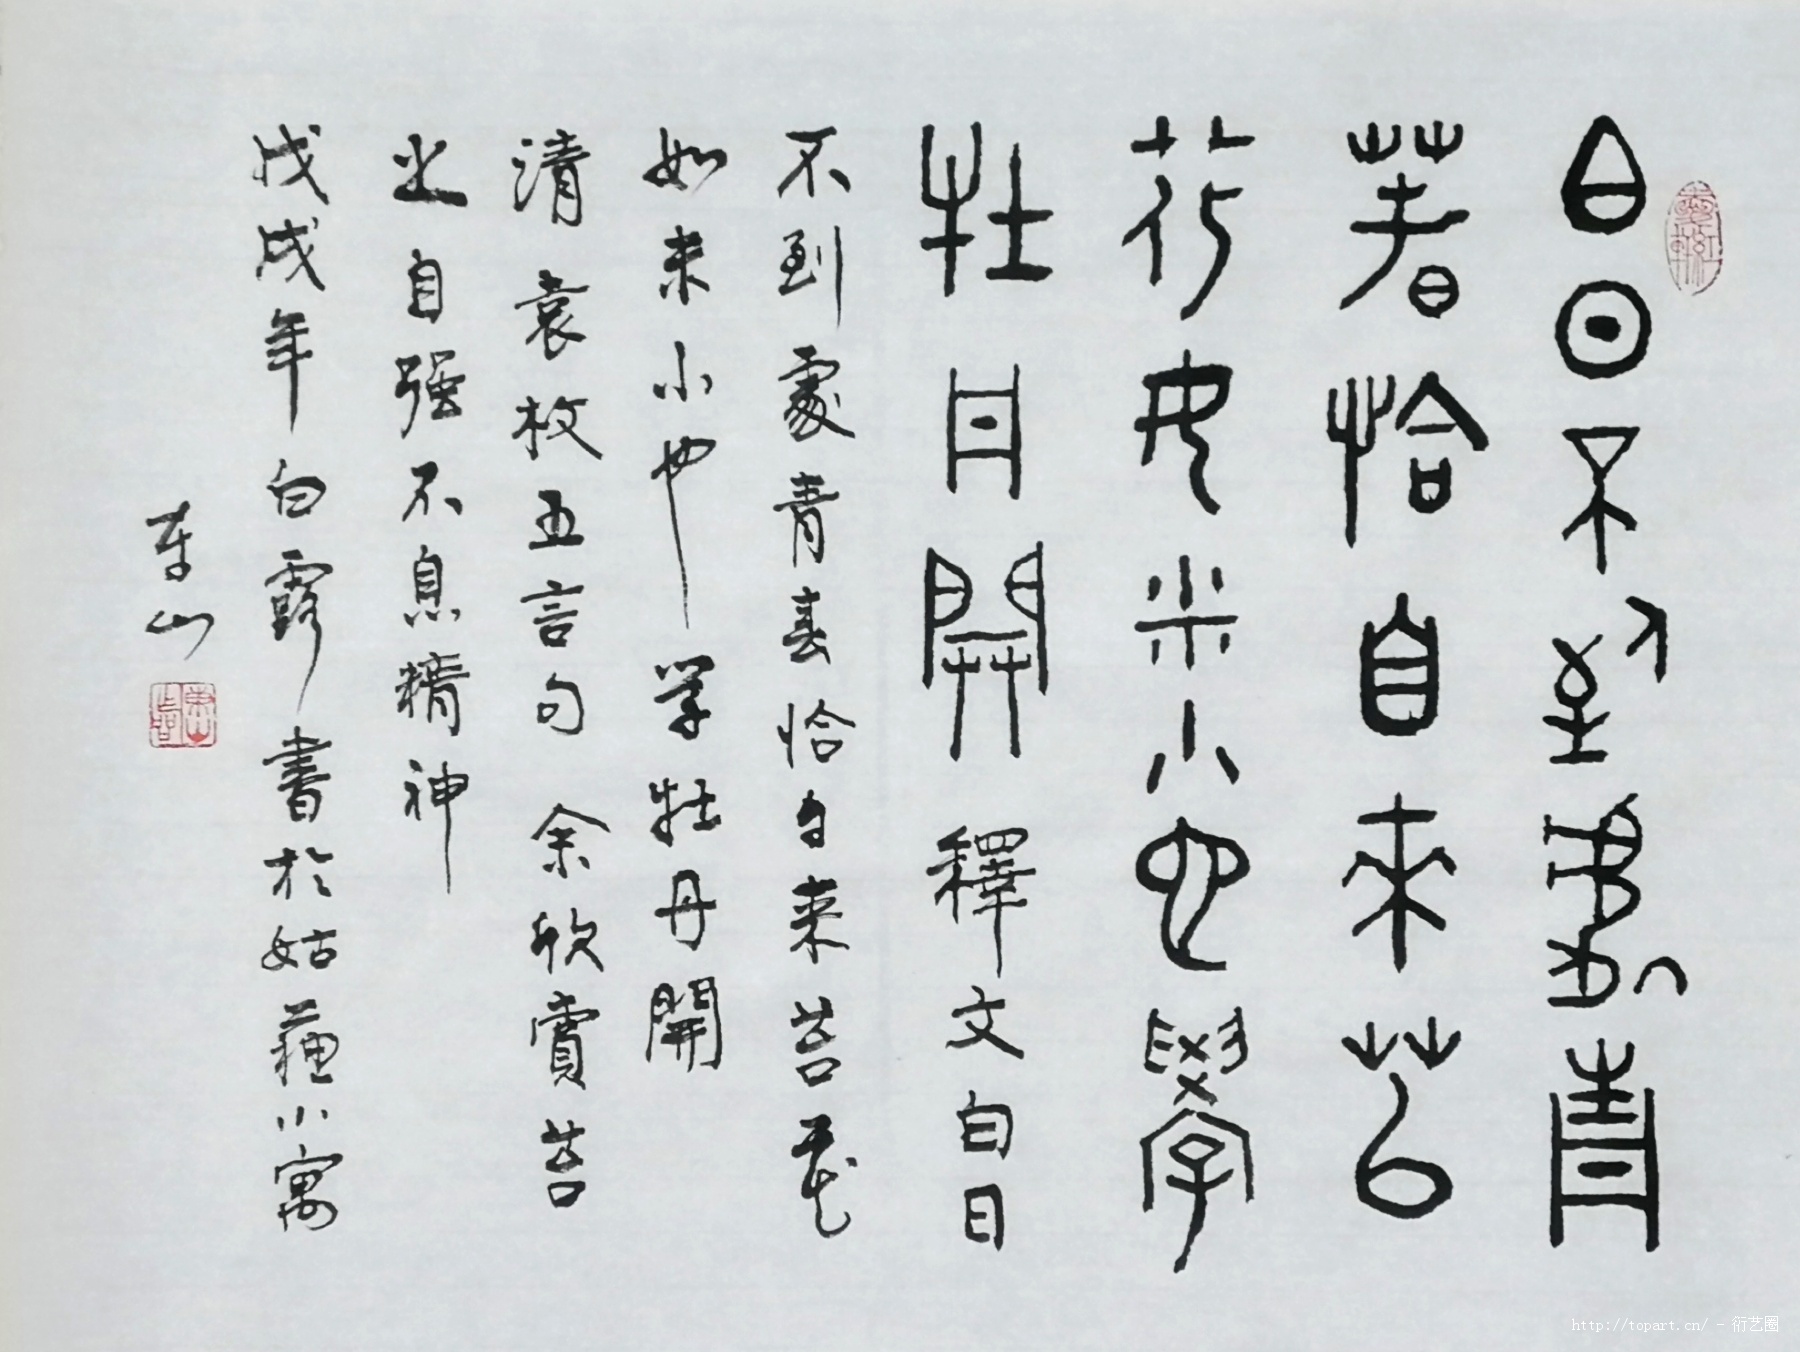 白日不到處青
春恰自來苔
花如米小也學
牡丹開 釋文白日
不到處青春恰自来苔花
如米小也学牡丹開
清袁枚五言句 余欣賞苔
之自强不息精神
戊戌年白露書於姑蘇小寓
东山
http://topart.cn/ - 衍艺圈